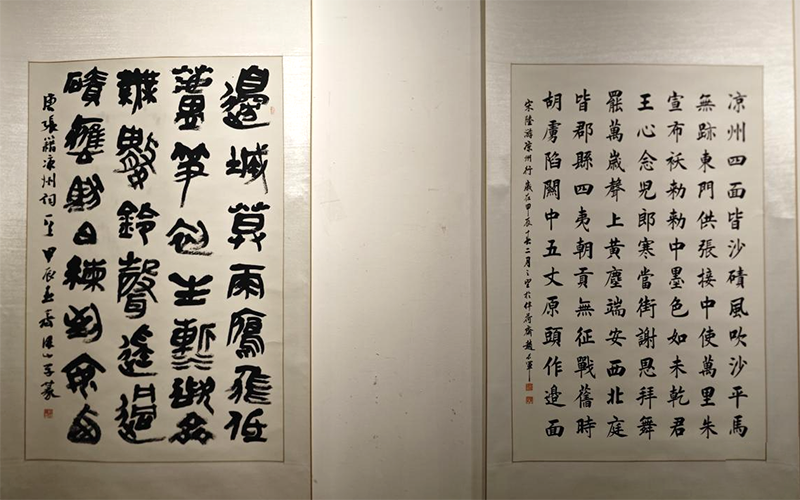 凉州四面皆沙磧風吹沙平馬
無跡東門供張接中使萬里朱
宣布袄勅勅中墨色如未乾君
王心念兒郎寒當街謝恩拜舞
罷萬歲聲上黃塵端安西北庭
皆郡縣四夷朝貢無征戰舊時
胡虜陷關中五丈原頭作邊面
宋陸游凉州行 歲在甲辰二月之望於伴荷齋趙
邊城莫雨鴈飛低
蘆笋初生漸欲齊
無數鈴聲遙過
磧應馱白練到安西
唐張籍凉州詞一首 甲辰春